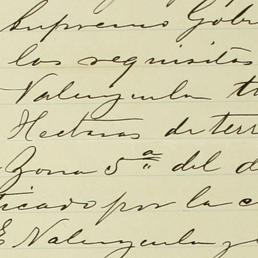 Supremo Gob
los requisitos
Valenzuela t
Hectaras de terr
Zona 5ª del d
ticado por la c
E Valenzuela y